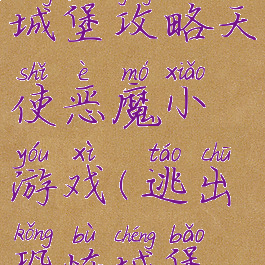 城堡攻略天
shǐ è mó xiǎo
使恶魔小
yóu xì táo chū
游戏(逃出
kǒng bù chéng bǎo
恐怖城堡